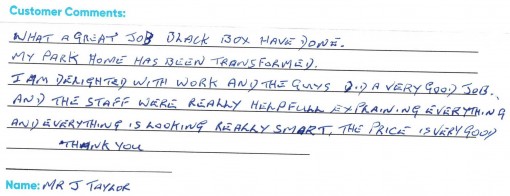 Customer Comments:
WHAT A GREAT JOB BLACK BOX HAVE DONE.
MY PARK HOME HAS BEEN TRANSFORMED.
I AM DELIGHTED WITH WORK AND THE GUYS DID A VERY GOOD JOB.
AND THE STAFF WERE REALLY HELPFULL EXPLAINING EVERYTHING
AND EVERYTHING IS LOOKING REALLY SMART, THE PRICE IS VERY GOOD
THANK YOU
Name: MR J TAYLOR